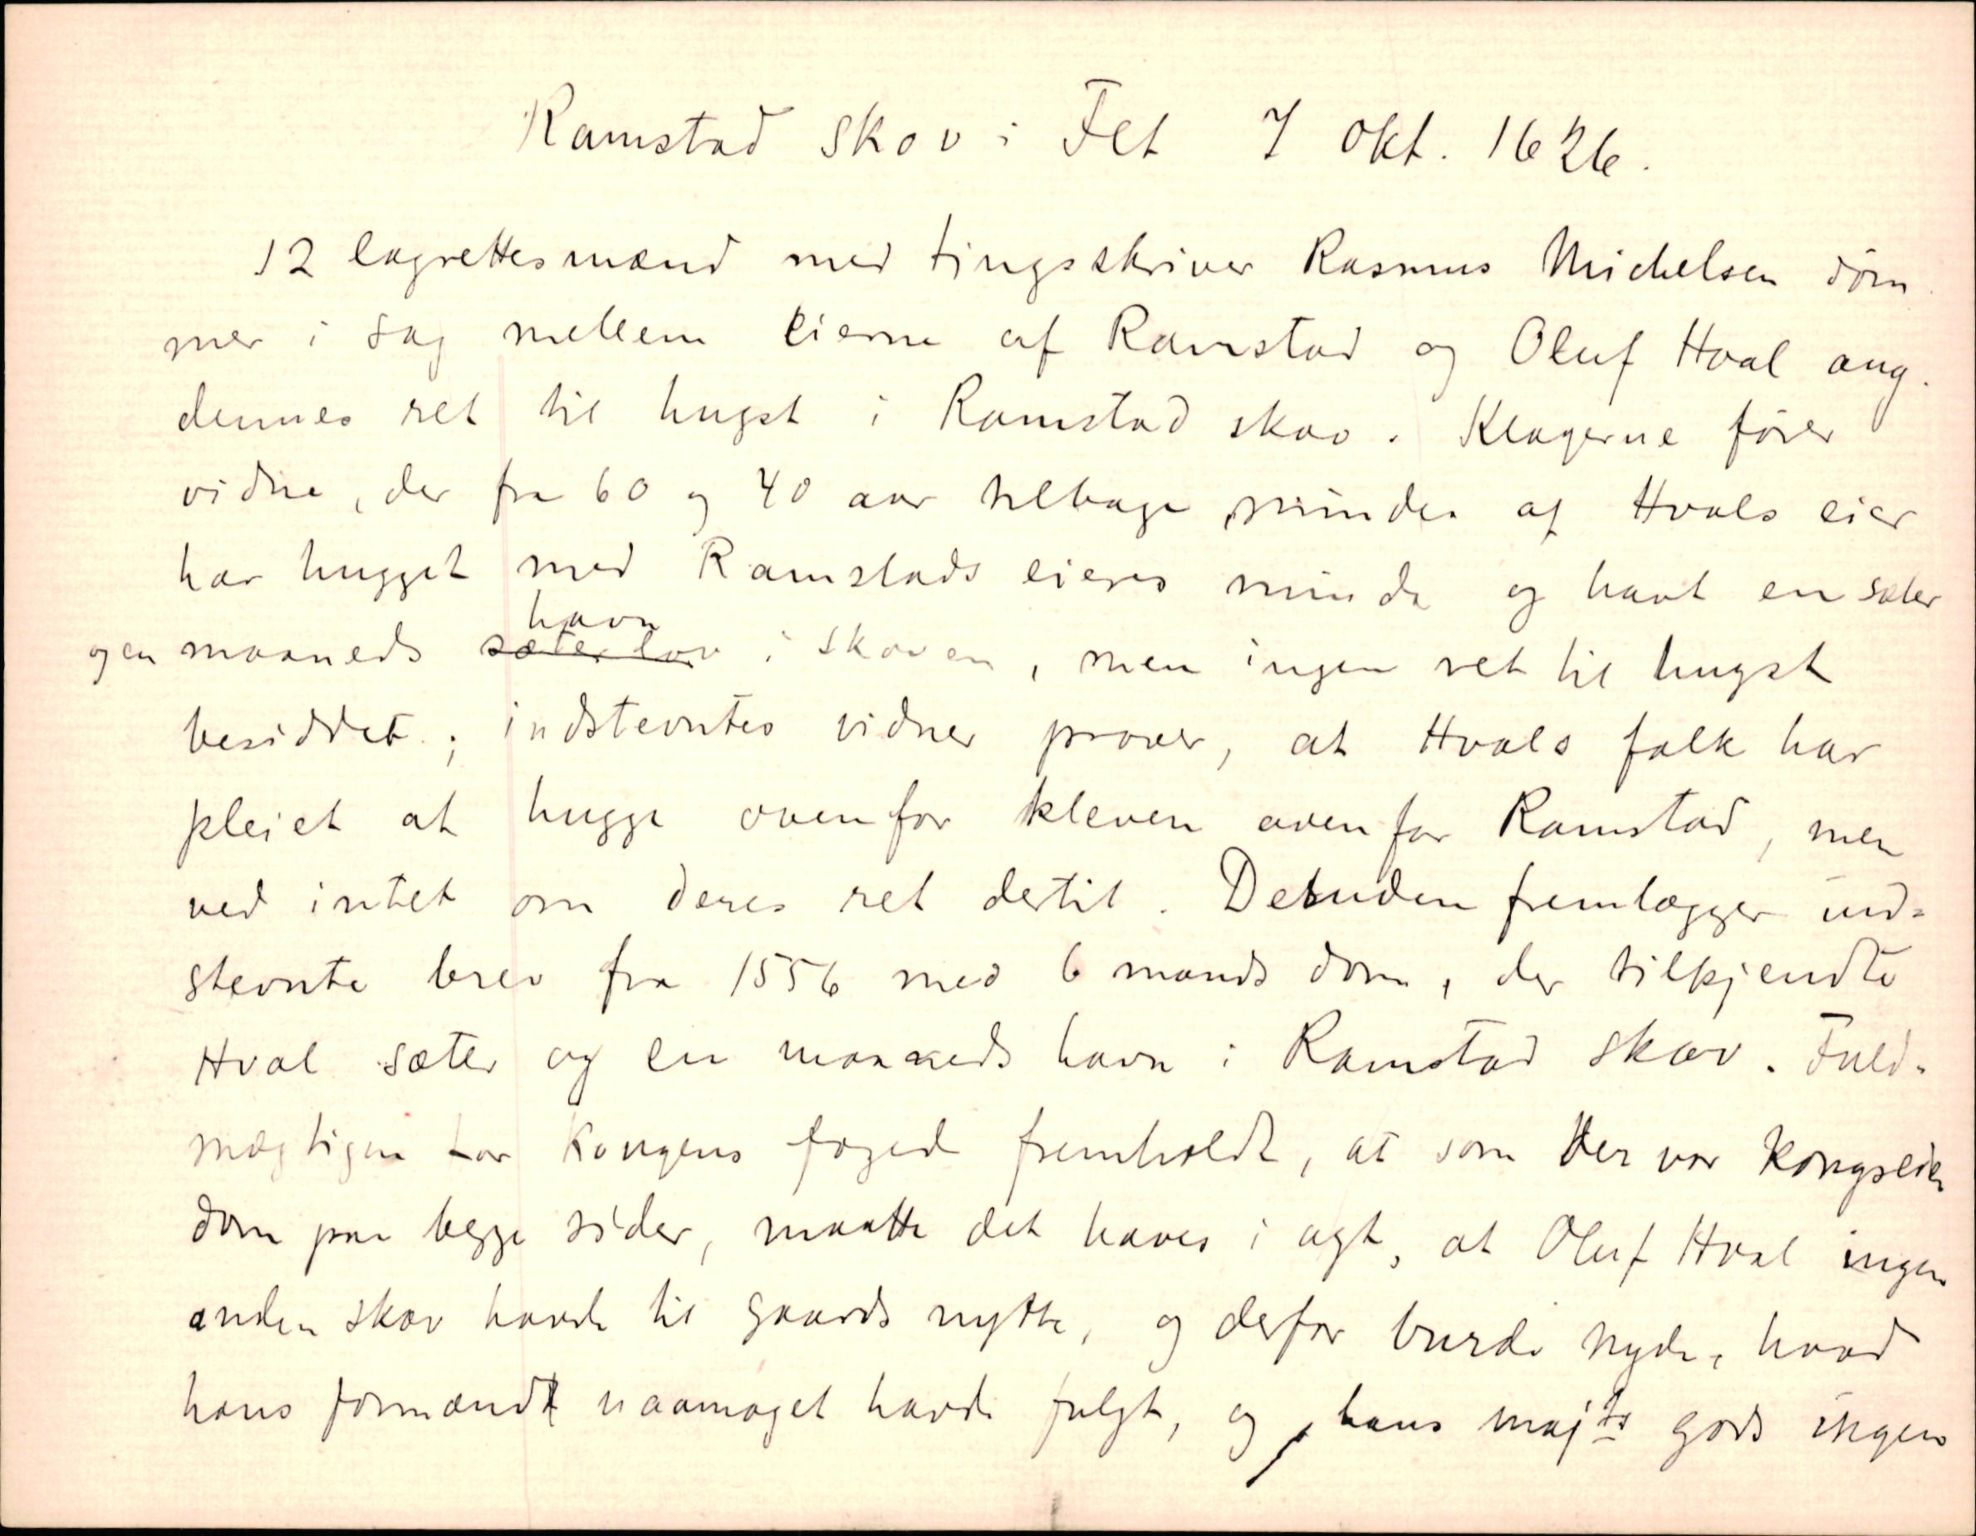 Ramstad skov i Fet 7 okt. 1626.
12 lagrettesmænd med tingsskriver Rasmus Michelsen døm
mer i sag mellem eierne af Ramstad og Oluf Hval ang.
dennes ret til hugst i Ramstad skov. Klagerne fører
vidne, der fra 60 og 40 aar tilbage mindes at Hvals eier
har hugget med Ramstads eieres minde og havt en sæter
og en maaneds havn i skoven, men ingen ret til hugst
besiddet; indstevntes vidner prover, at Hvals folk har
pleiet at hugge ovenfor kleven ovenfor Ramstad, men
ved intet om deres ret dertil. Desuden fremlægger ind=
stevnte brev fra 1556 med 6 mands dom, der tilkjendte
Hval sæter og en maaneds havn i Ramstad skov. Fuld-
mægtigen for kongens foged fremholdt, at som der var kongseien
dom paa begge sider, maatte det haves i agt, at Oluf Hval ingen
anden skov havde til gaards nytte, og derfor burde nyde, hvad
hans formænd naamaget havde fulgt, og hans maj<sup>ts</sup> gods ingen